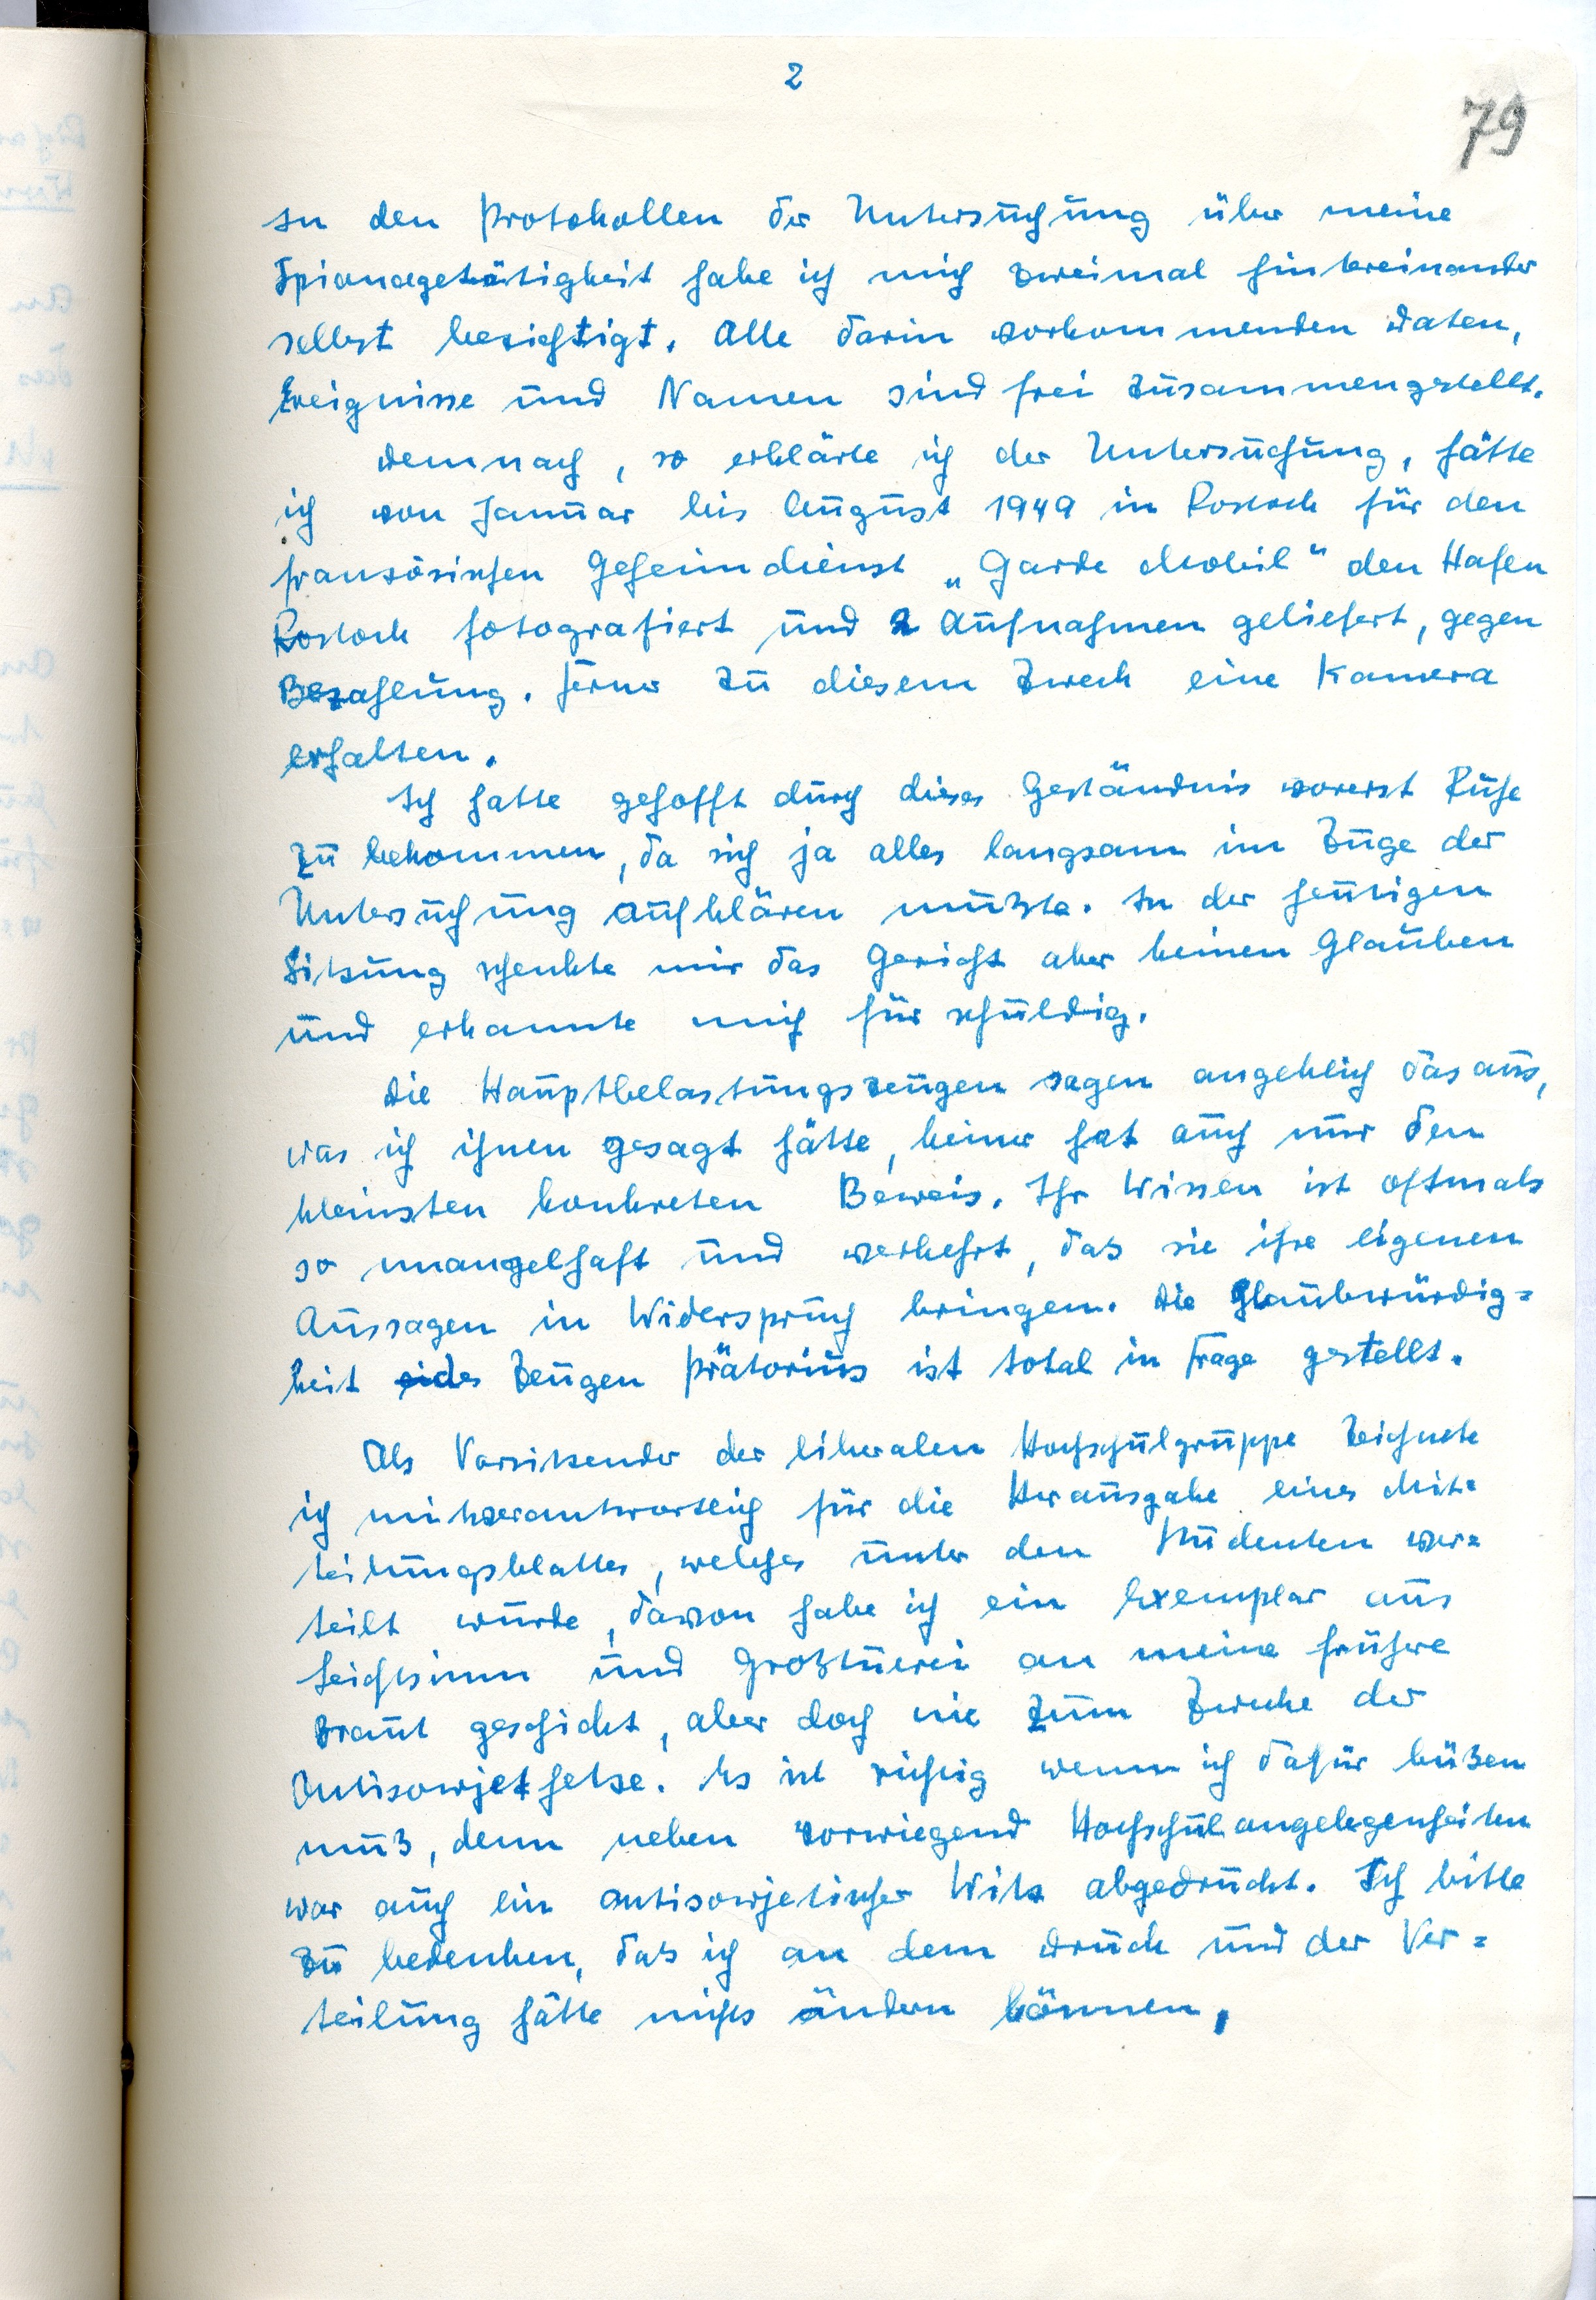 2
79
In den Protokollen der Untersuchung über meine
Spionagetätigkeit habe ich mich zweimal hintereinander
selbst bezichtigt. Alle darin vorkommenden Daten,
Ereignisse und Namen sind frei zusammengestellt.
Demnach, so erklärte ich der Untersuchung, hätte
ich von Januar bis August 1949 in Rostock für den
französischen Geheimdienst „Garde Mobil" den Hafen
Rostock fotografiert und 2 Aufnahmen geliefert, gegen
Bezahlung. Ferner zu diesem Zweck eine Kamera
erhalten.
Ich hatte gehofft durch dieses Geständnis vorerst Ruhe
zu bekommen, da sich ja alles langsam im Zuge der
Untersuchung aufklären müßte. In der heutigen
Sitzung schenkte mir das Gericht aber keinen Glauben
und erkannte mich für schuldig.
Die Hauptbelastungszeugen sagen angeblich das aus,
was ich ihnen gesagt hätte, keiner hat auch nur den
kleinsten konkreten Beweis. Ihr Wissen ist oftmals
so mangelhaft und verkehrt, daß sie ihre eigenen
Aussagen in Widerspruch bringen. Die Glaubwürdig=
keit des Zeugen Prätorius ist total in Frage gestellt.
Als Vorsitzender der liberalen Hochschulgruppe zeichnete
ich mitverantwortlich für die Herausgabe eines Mit=
teilungsblattes, welches unter den Studenten ver=
teilt wurde, davon habe ich ein Exemplar aus
Leichtsinn und Großtuerei an meine frühere
Braut geschickt, aber doch nie zum Zwecke der
Antisowjethetze. Es ist richtig wenn ich dafür büßen
muß, denn neben vorwiegend Hochschulangelegenheiten
war auch ein antisowjetischer Witz abgedruckt. Ich bitte
zu bedenken, daß ich an dem Druck und der Ver=
teilung hätte nichts ändern können,